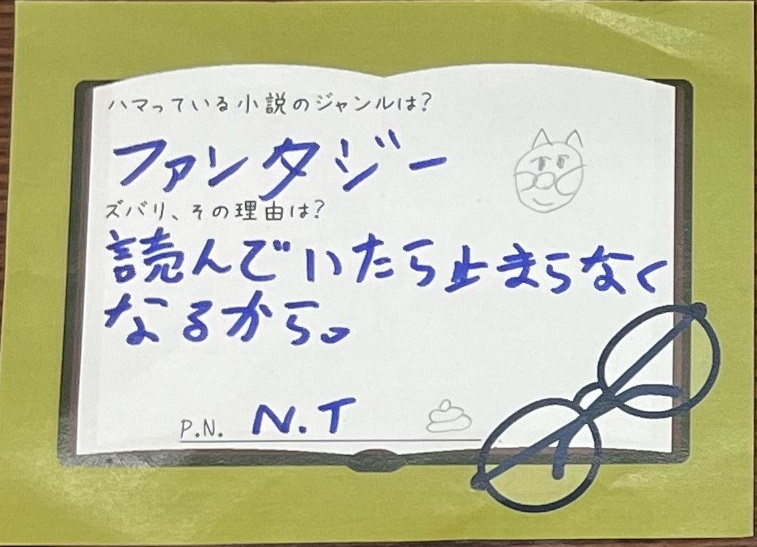 ハマっている小説のジャンルは?
ファンタジー
ズバリ、その理由は?
読んでいたら止まらなく
なるから。
P.N. N.T